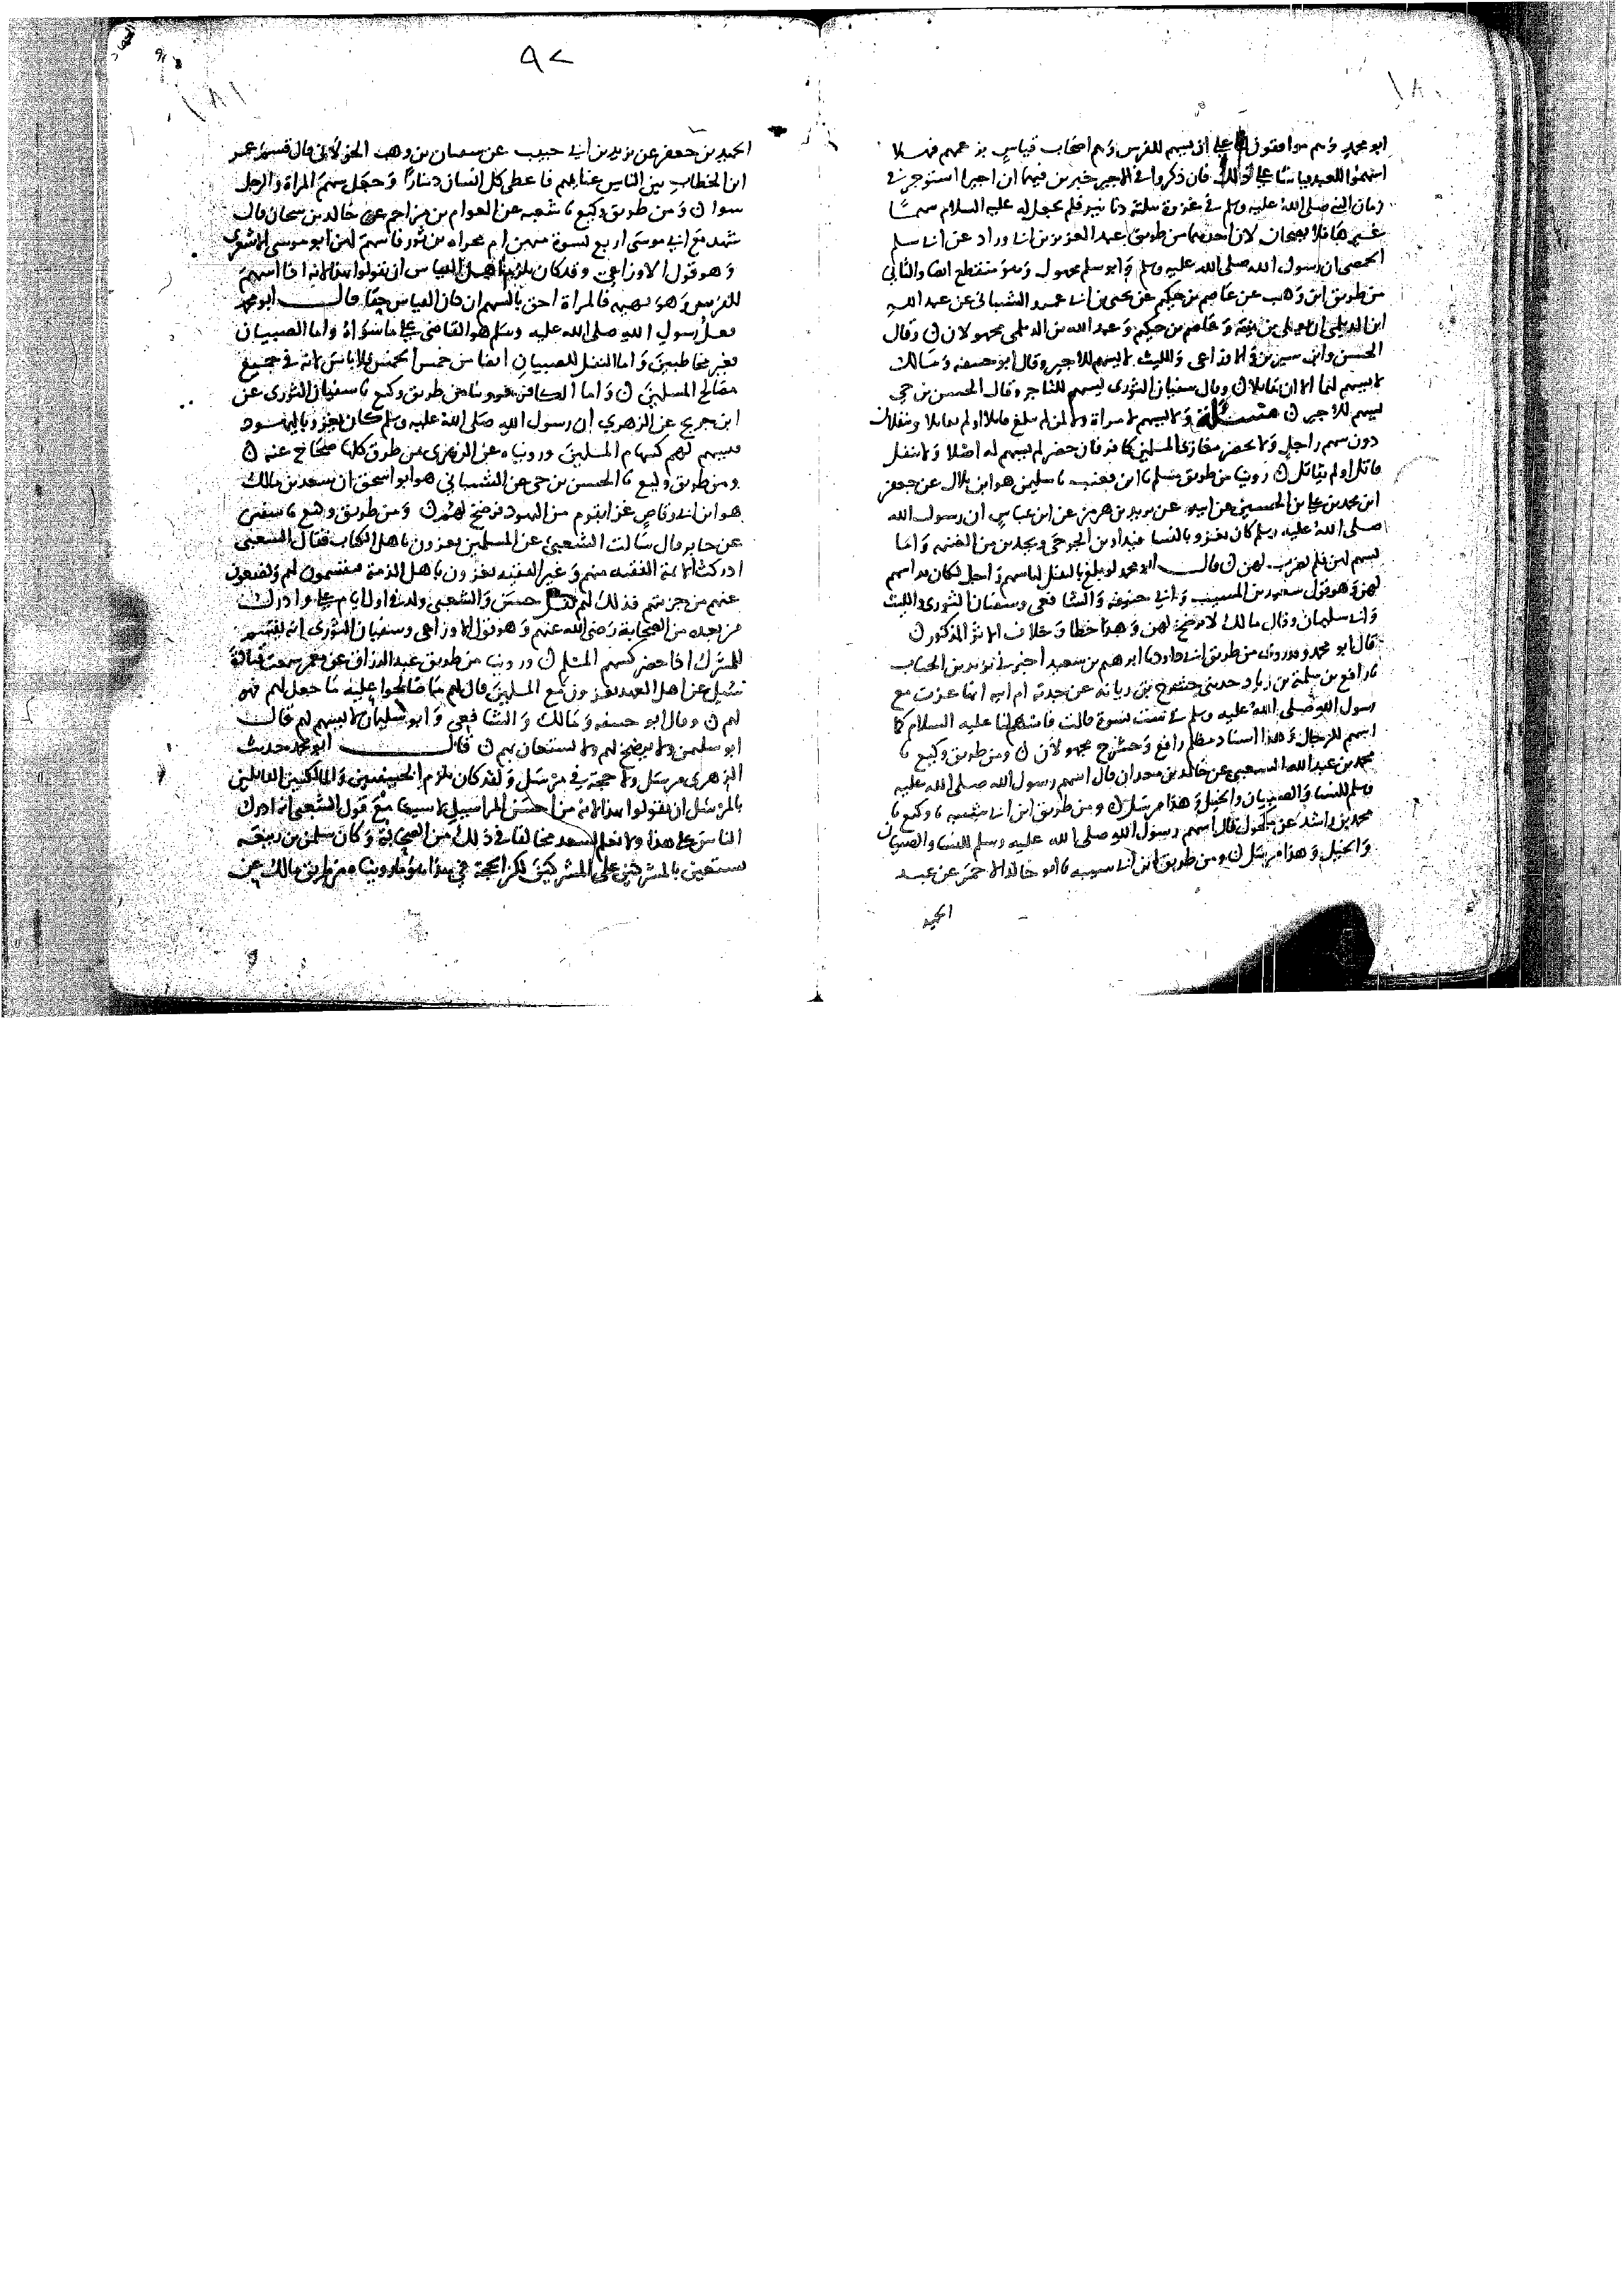 ابو محمد وهم موافقون على ان يسهم للفرس وهم اصحاب قياس بزعمهم فهلا
اسهموا للعبد قياسا على ذلك فان ذكروا في الاجير خبرين فيهما ان اجيرا استوجر في
زمان النبي صلى الله عليه وسلم في غزوة بثلثة دنانير فلم يجعل له عليه السلام سهما
غيرها فلا يصحان لان احدهما من طريق عبد العزيز بن ابي رواد عن ابي سلم
الحمصي ان رسول الله صلى الله عليه وسلم وابو سلم مجهول وهو منقطع ايضا والثاني
من طريق ابن وهب عن عاصم بن حكيم عن يحيى بن ابي عمرو الشيباني عن عبد الله
ابن الديلمي ان يعلى بن منية وعاصم بن حكيم وعبد الله بن الديلمي مجهولان ن وقال
الحسن وابن سيرين والاوزاعي والليث لا يسهم للاجير وقال ابو حنيفة ومالك
لا يسهم لهما الا ان يقاتلا ن وقال سفيان الثوري يسهم للتاجر وقال الحسن بن حي
يسهم للاجير ن مسئلة ولا يسهم لامراة ولا لمن لم يبلغ قاتلا او لم يقاتلا وينفلان
دون سهم راجل ولا يحضر مغازي المسلمين كافر فان حضر لم يسهم له اصلا ولا ينفل
قاتل او لم يقاتل ن روينا من طريق مسلم نا ابن قعنب نا سليمن هو ابن بلال عن جعفر
ابن محمد بن علي بن الحسين عن ابيه عن يزيد بن هرمز عن ابن عباس ان رسول الله
صلى الله عليه وسلم كان يغزو بالنسا فيداوين الجرحى ويحذين من الغنيمة واما
بسهم لهن فلم يضرب لهن ن قال ابو محمد لو بلغ بالنفل لهما سهم راجل لكان قد اسهم
لهن وهو قول سعيد بن المسيب وابي حنيفة والشافعي وسفيان الثوري والليث
وابي سليمان وقال مالك لا يرضخ لهن وهذا خطا وخلاف الاثر المذكور ن
قال ابو محمد وروينا من طريق ابي داود نا ابرهيم بن سعيد اخبرني زيد بن الحباب
نا رافع بن سلمة بن زياد حدثني حشرج بن زياد عن جدته ام ابيه انها غزت مع
رسول الله صلى الله عليه وسلم في ست نسوة قالت فاسهم لنا عليه السلام كما
اسهم للرجال وهذا اسناد مظلم رافع وحشرج مجهولان ن ومن طريق وكيع نا
محمد بن عبد الله الشعيثي عن خالد بن معدان قال اسهم رسول الله صلى الله عليه
وسلم للنسا والصبيان والخيل وهذا مرسل ن ومن طريق ابن ابي شيبه نا وكيع نا
محمد بن راشد عن مكحول قال اسهم رسول الله صلى الله عليه وسلم للنسا والصبيان
والخيل وهذا مرسل ن ومن طريق ابن ابي شيبه نا ابو خالد الاحمر عن عبد
الحميد
٩٢
الحميد بن جعفر عن يزيد بن ابي حبيب عن سفيان بن وهب الخولاني قال قسم عمر
ابن الخطاب بين الناس غنائمهم فاعطى كل انسان دينارا وجعل سهم المراة والرجل
سوا ن ومن طريق وكيع نا شعبه عن العوام بن مزاحم عن خالد بن سيحان قال
شهد مع ابي موسى اربع نسوة منهن ام مجزاه بن ثور فاسهم لهن ابو موسى الاشعري
وهو قول الاوزاعي وقد كان يلزم اهل القياس ان يقولوا بهذا لانه اذا اسهم
للفرس وهو بهيمه فالمراة احق بالسهم ان كان القياس حقا قال ابو محمد
فعل رسول الله صلى الله عليه وسلم هو القاضي على ما سواه واما الصبيان
فغير مخاطبين واما النفل للصبيان ايضا من خمس الخمس فلا باس لانه في جميع
مصالح المسلمين ن واما الكافر فروينا من طريق وكيع نا سفيان الثوري عن
ابن جريج عن الزهري ان رسول الله صلى الله عليه وسلم كان يغزو باليهود
فيسهم لهم كسهام المسلمين ورويناه عن الزهري من طرق كلها صحاح عنه ن
ومن طريق وكيع نا الحسن بن حي عن الشيباني هو ابو اسحق ان سعد بن مالك
هو ابن ابي وقاص غزا بقوم من اليهود فرضخ لهم ن ومن طريق وكيع نا سفين
عن جابر قال سالت الشعبي عن المسلمين يغزون باهل الكتاب فقال الشعبي
ادركت الائمة الفقيه منهم وغير الفقيه يغزون باهل الذمة فيقسمون لهم ويضعون
عنهم من جزيتهم فذلك لهم نفل حسن والشعبي ولد في اول ايام علي وادرك
من بعده من الصحابة رضي الله عنهم وهو قول الاوزاعي وسفيان الثوري انه يقسم
للمشرك اذا حضر كسهم المسلم ن وروينا من طريق عبد الرزاق عن معمر سمعت قتادة
سئل عن اهل العهد يغزون مع المسلمين قال لهم ما صالحوا عليه ما جعل لهم فهو
لهم ن وقال ابو حنيفه ومالك والشافعي وابو سليمان لا يسهم لهم قال
ابو سليمن ولا يرضخ لهم ولا يستعان بهم ن قال ابو محمد حديث
الزهري مرسل ولا حجة في مرسل ولقد كان يلزم الحنيفيين والمالكيين القائلين
بالمرسل ان يقولوا بهذا لانه من احسن المراسيل لا سيما مع قول الشعبي انه ادرك
الناس على هذا ولا نعلم لسعد مخالفا في ذلك من الصحابة وكان سلمن بن ربيعه
يستعين بالمشركين على المشركين لكن الحجة في هذا هو ما رويناه من طريق مالك عن